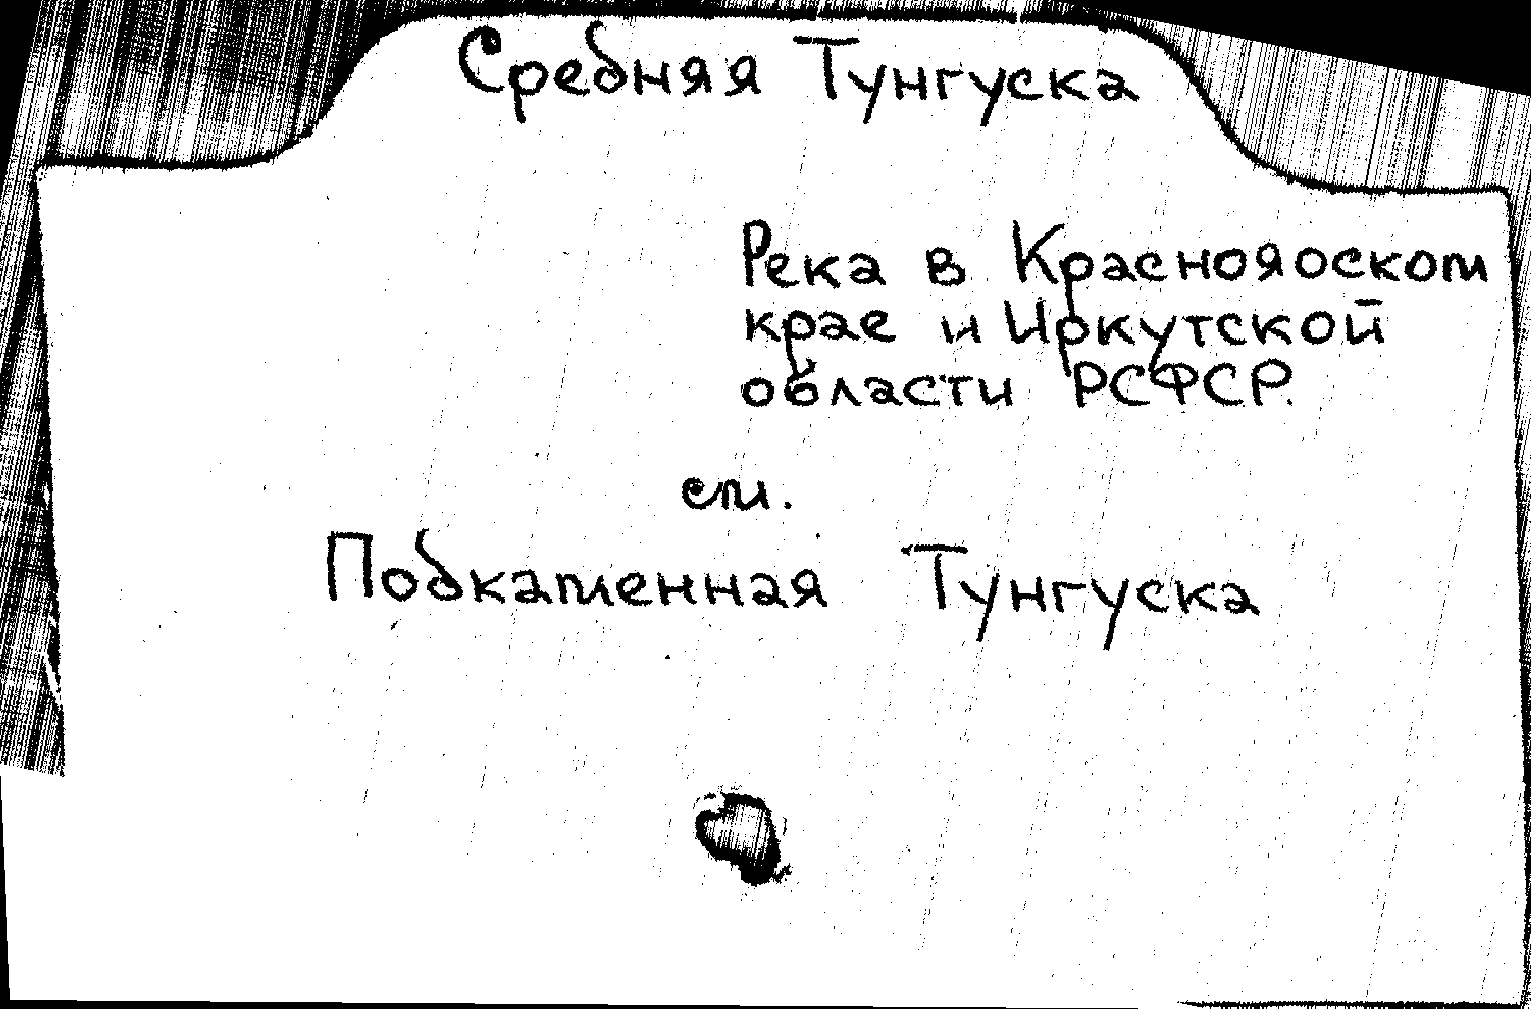 Средняя Тунгуска
Река в Краснояоском
крае и Иркутской
области РСФСР.
см.
Подкаменная Тунгуска